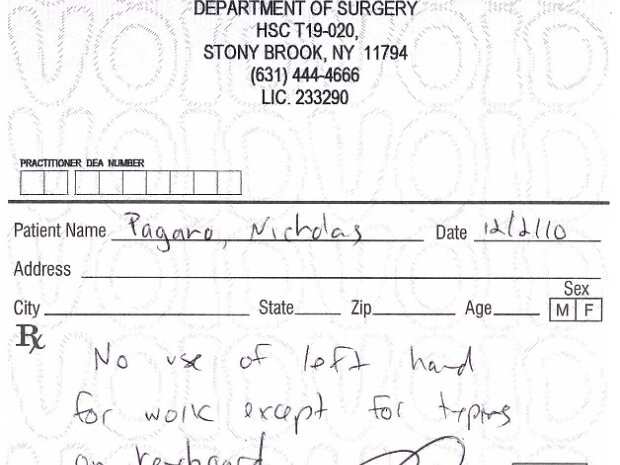 DEPARTMENT OF SURGERY
HSC T19-020,
STONY BROOK, NY 11794
(631) 444-4666
LIC. 233290
PRACTITIONER DEA NUMBER
Patient Name Pagano, Nicholas Date 12/2/10
Address
Sex
City State Zip Age M F
Rx
No use of left hand
for work except for typing
on keyboard